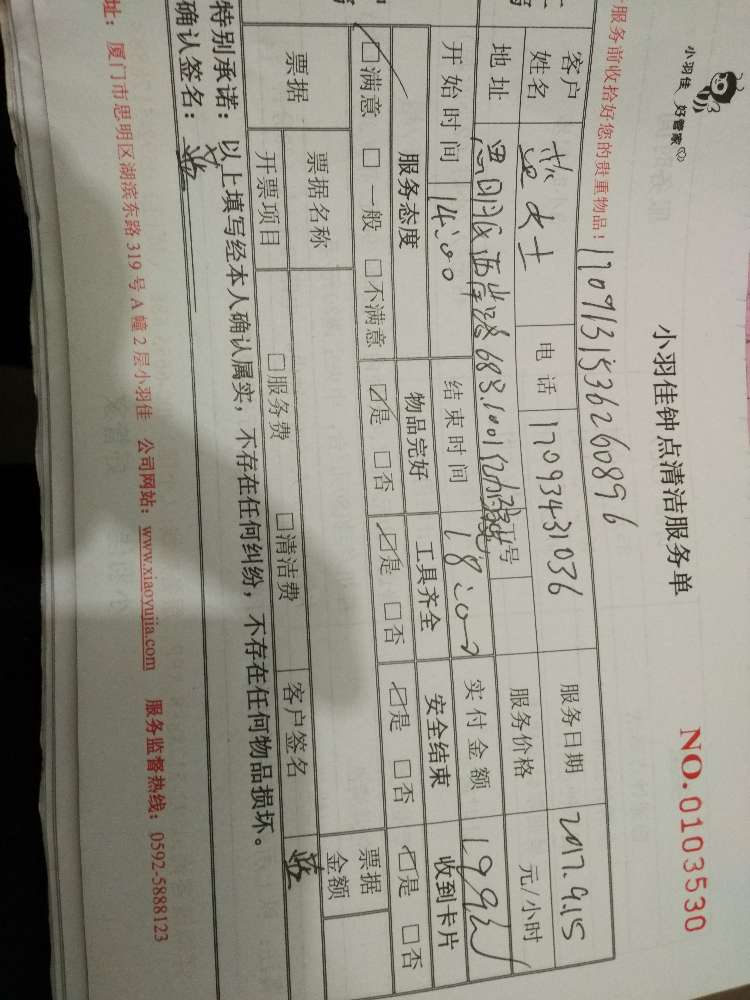 小羽佳 好管家
小羽佳钟点清洁服务单
NO.0103530
服务前收拾好您的贵重物品！
1709131536260896
客户姓名 女士 电话 17093431036 服务日期 2017.9.15
地址 思明区 683.1001 号 服务价格 元/小时
开始时间 14:00 结束时间 18:00 实付金额 199
服务态度 物品完好 工具齐全 安全结束 收到卡片
□满意 □一般 □不满意 ☑是 □否 ☑是 □否 ☑是 □否 ☑是 □否
票据 票据名称 票据金额
开票项目 □服务费 □清洁费 客户签名
特别承诺：以上填写经本人确认属实，不存在任何纠纷，不存在任何物品损坏。
确认签名：
址：厦门市思明区湖滨东路 319 号 A 幢 2 层小羽佳 公司网站：www.xiaoyujia.com 服务监督热线：0592-5888123